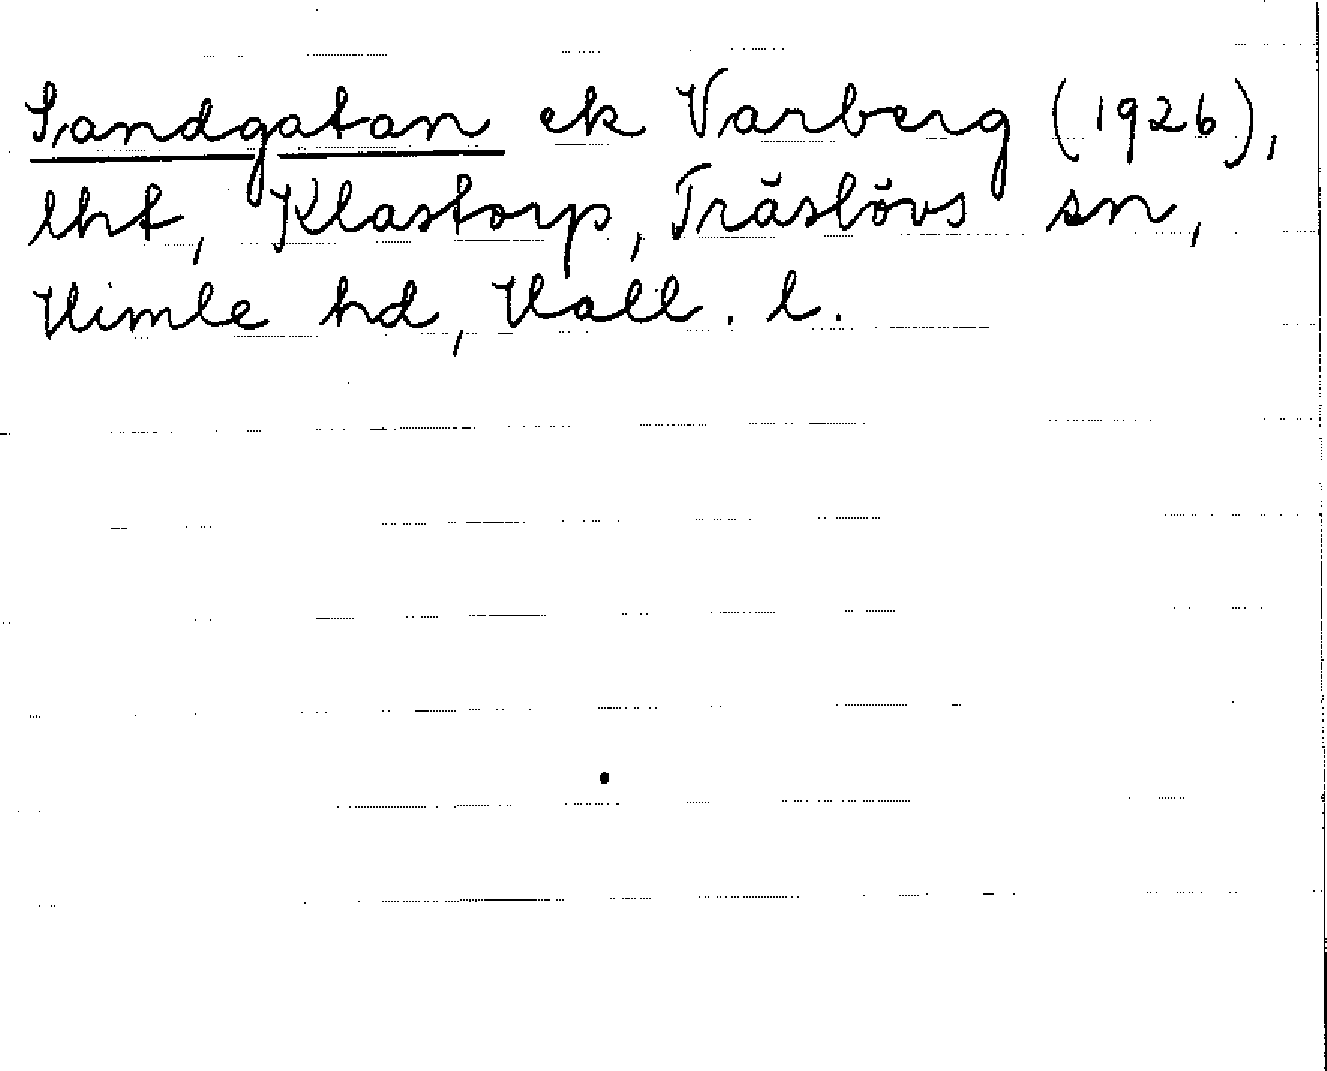 Sandgatan ek Varberg (1926),
lht, Klastorp, Träslövs sn,
Himle hd, Hall. l.